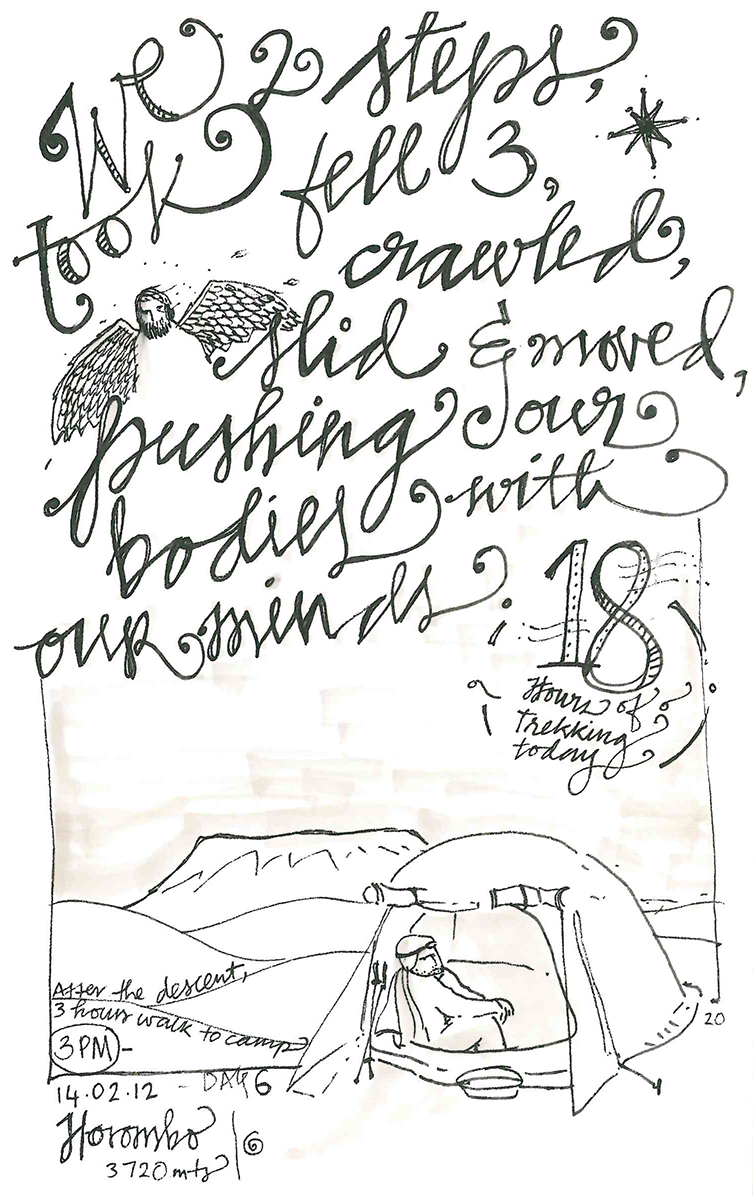 We 2 steps,
took fell 3,
crawled,
slid & moved,
pushing our
bodies with
our minds
18
Hours of
Trekking
today
After the descent,
3 hours walk to camp
3PM -
20
14.02.12 - DAY 6
Horombo
3720 mts
6